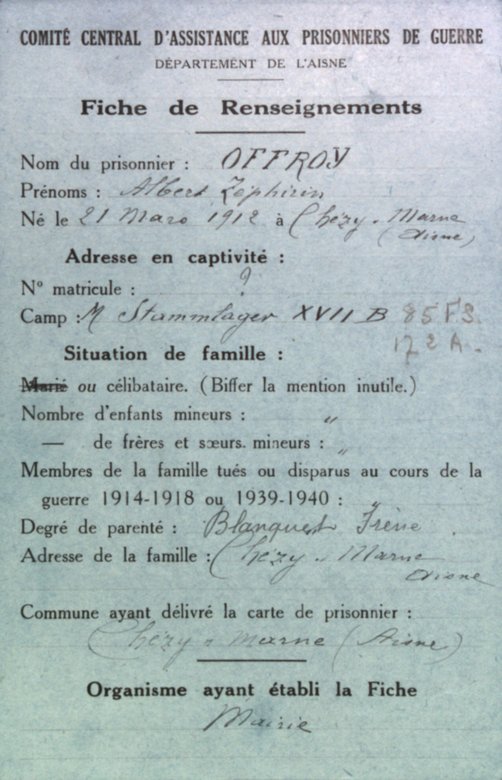 COMITÉ CENTRAL D'ASSISTANCE AUX PRISONNIERS DE GUERRE
DÉPARTEMENT DE L'AISNE
Fiche de Renseignements
Nom du prisonnier : OFFROY
Prénoms : Albert Zéphirin
Né le 21 Mars 1912 à Chézy s. Marne
(Aisne)
Adresse en captivité :
N° matricule : ?
Camp : M Stammlager XVII B 85 F3
172 A.
Situation de famille :
Marié ou célibataire. (Biffer la mention inutile.)
Nombre d'enfants mineurs : "
— de frères et sœurs. mineurs : "
Membres de la famille tués ou disparus au cours de la
guerre 1914-1918 ou 1939-1940 : "
Degré de parenté : Blanquet Irène
Adresse de la famille : Chézy s. Marne
Aisne
Commune ayant délivré la carte de prisonnier :
Chézy s Marne (Aisne)
Organisme ayant établi la Fiche
Mairie